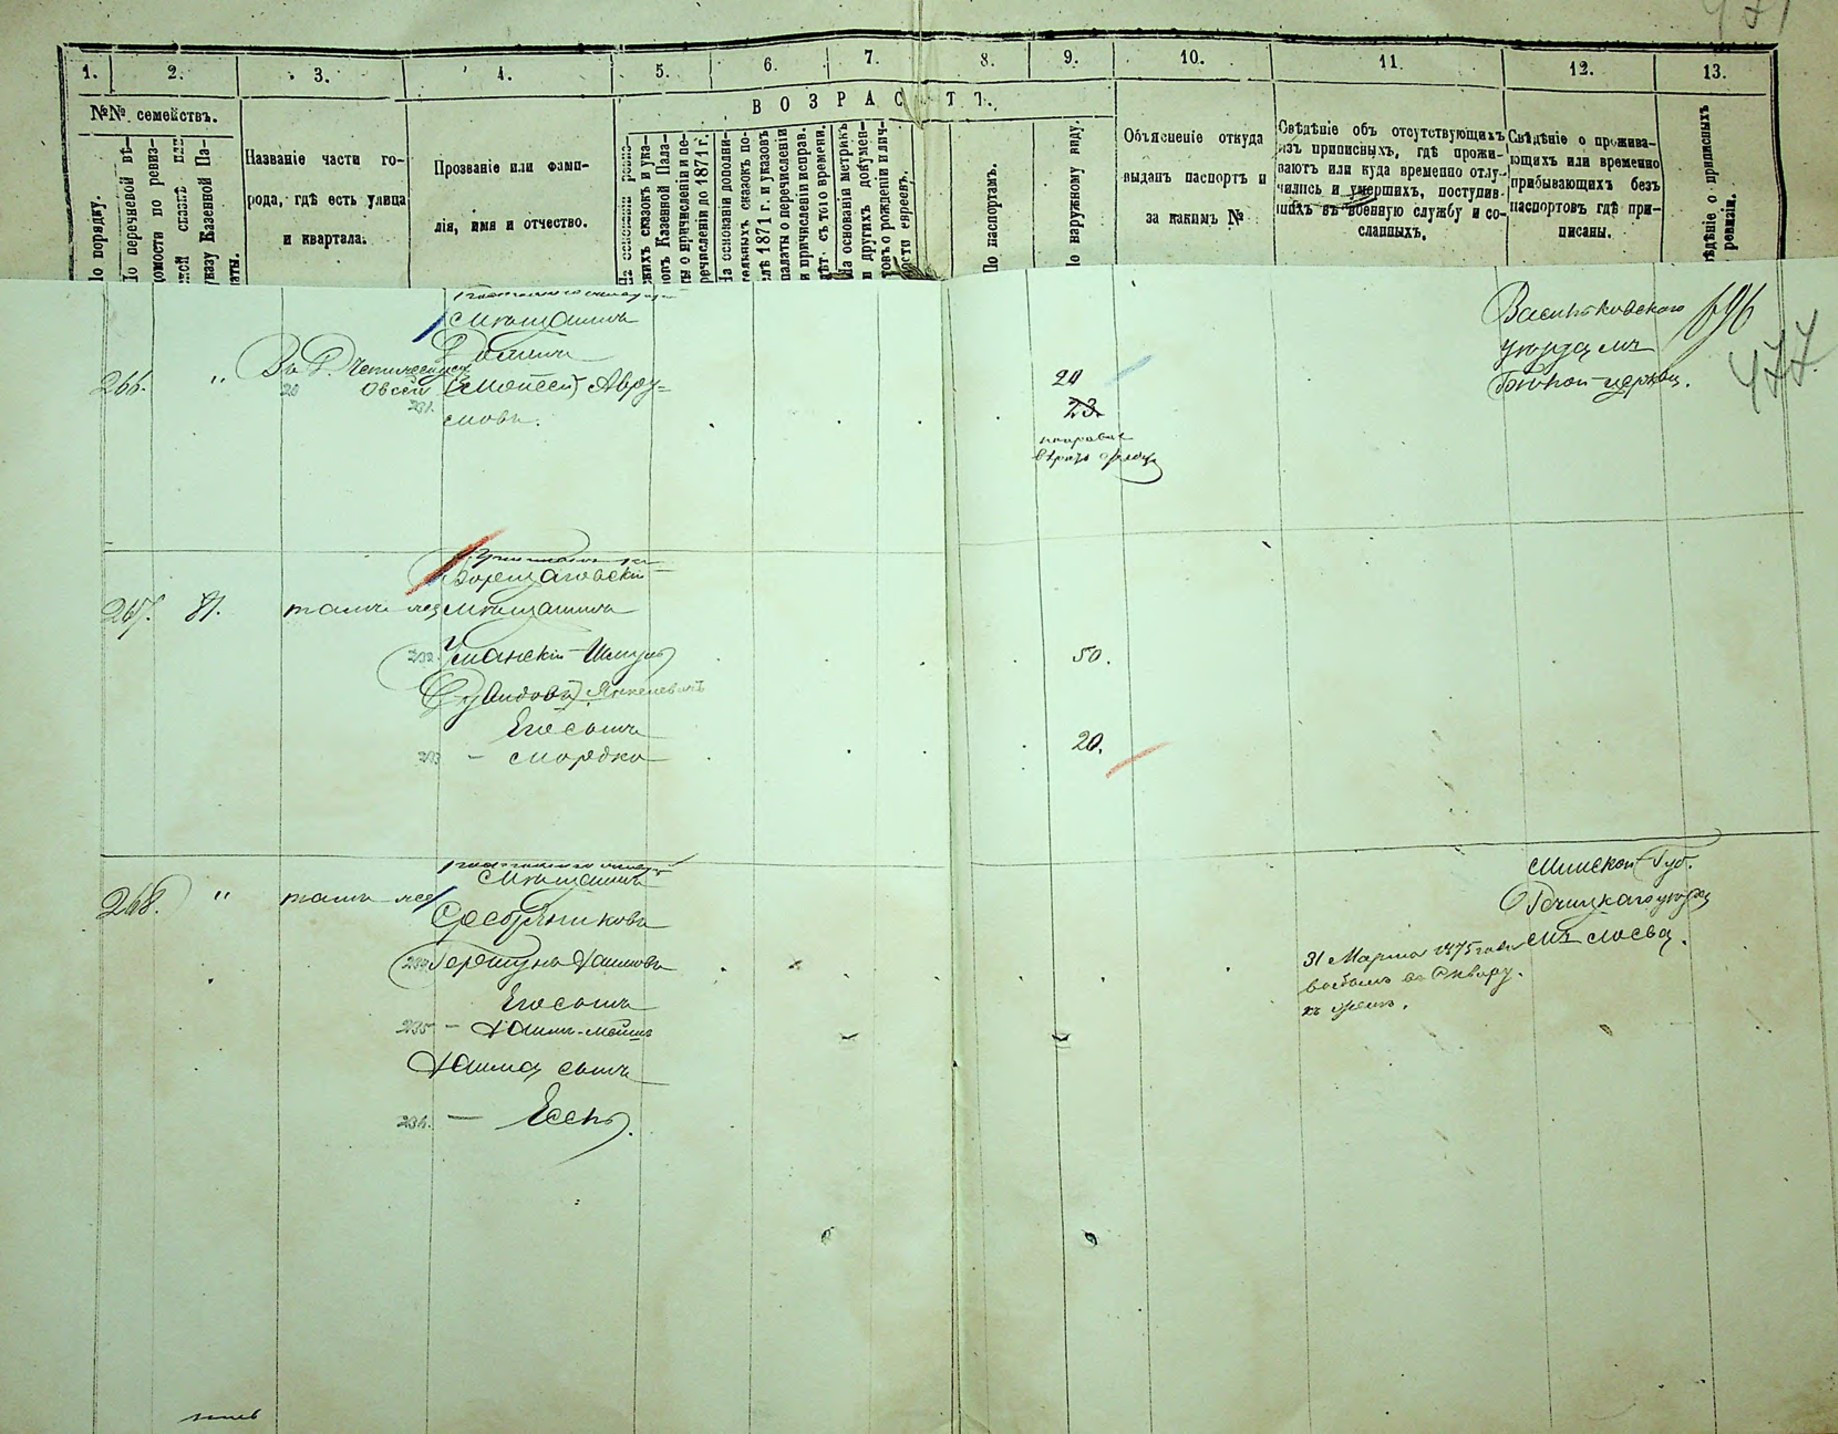 1.
2.
3.
4.
5.
6.
7.
8.
9.
10.
11.
12.
13.
№№ семействъ.
ВОЗРАСТЪ.
По порядку.
По перечневой вѣ-
домости по ревиз-
ской сказкѣ или
указу Казенной Па-
латы.
Названіе части го-
рода, гдѣ есть улица
и квартала.
Прозваніе или фами-
лія, имя и отчество.
На основаніи ревиз-
скихъ сказокъ и ука-
зовъ Казенной Пала-
ты о причисленіи и пе-
речисленіи до 1871 г.
На основаніи дополни-
тельныхъ сказокъ по-
слѣ 1871 г. и указовъ
палаты о перечисленіи
и причисленіи исправ.
лѣт. съ того времени.
На основаніи метрикъ
и другихъ докумен-
товъ о рожденіи и лич-
ности евреевъ.
По паспортамъ.
По наружному виду.
Объясненіе откуда
выданъ паспортъ и
за какимъ №
Свѣдѣніе объ отсутствующихъ
изъ приписныхъ, гдѣ прожи-
ваютъ или куда временно отлу-
чились и умершихъ, поступив-
шихъ въ военную службу и со-
сланныхъ.
Свѣдѣніе о прожива-
ющихъ или временно
прибывающихъ безъ
паспортовъ гдѣ при-
писаны.
Свѣдѣніе о приписныхъ
ревизіи.
477.
266.
"
Мѣщанинъ
Овсей (Мойсей) Авру=
мовъ.
231.
24
23
Васильковскаго
уѣзда мѣ
Бѣлой-церкви.
267.
81.
тамъ же
Борщаговскій
Мѣщанинъ
232. Уманскій Шмуль
(Дувидовъ) Янкелевичъ
Его сынъ
233 — Мордко
50.
20.
268.
"
тамъ же
Мѣщанинъ
Серебрянниковъ
234 Гершунъ Хаимовъ
Его сынъ
235 — Хаимъ-Мойше
Хаима сынъ
236. — Есель.
31 Марта 1875 года
выбылъ въ Сквиру.
Минской Губ.
Рѣчицкаго уѣзда
мѣ Лоева.